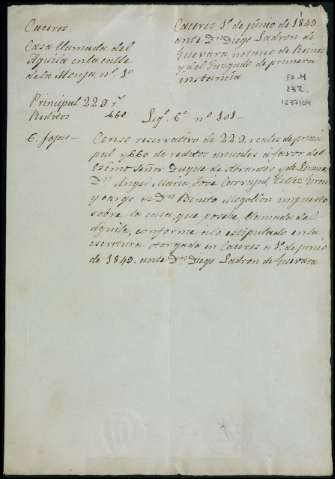 Caceres
Casa llamada del
Aguila en la calle
de la Monja nº 1º
Caceres 1º de junio de 1840
ante Dn Diego Ladron de
Guevara notario de Reinos
y del Juzgado de primera
instancia
Principal 22.0
Reditos 660
Leg. 6º nº 101
6. fojas
Censo reservativo de 22.0 reales de princi
pal y 660 de reditos anuales á favor del
Escmo Señor Duque de Abrantes y de Linares
Dn Angel Maria José Carvajal Tellez Giron
y cargo de Dn Benito impuesto
sobre la casa que posée, llamada del
Aguila, conforme á lo estipulado en la
escritura otorgada en Caceres á 1º de junio
de 1840. ante Dn Diego Ladron de Guevara